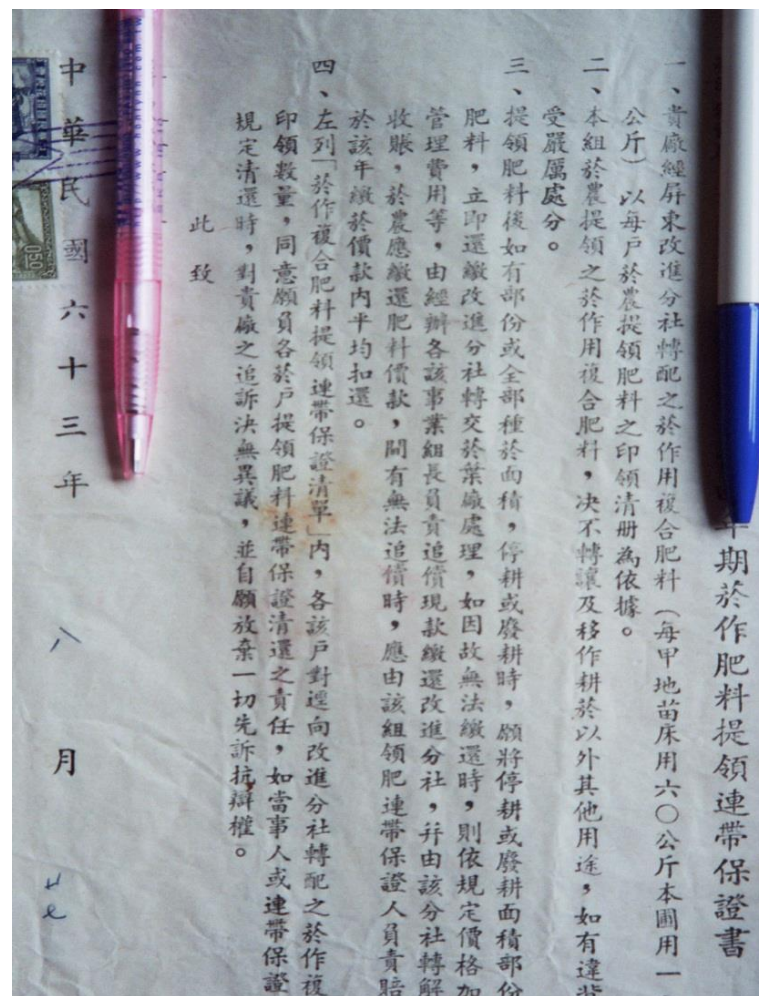 年期菸作肥料提領連帶保證書
一、貴廠經屏東改進分社轉配之菸作用複合肥料（每甲地苗床用六〇公斤本圃用一
公斤）以每戶菸農提領肥料之印領清册為依據。
二、本組菸農提領之菸作用複合肥料，决不轉讓及移作耕菸以外其他用途，如有違背
受嚴厲處分。
三、提領肥料後如有部份或全部種菸面積，停耕或廢耕時，願將停耕或廢耕面積部份
肥料，立即還繳改進分社轉交菸葉廠處理，如因故無法繳還時，則依規定價格加
管理費用等，由經辦各該事業組長負責追償現款繳還改進分社，幷由該分社轉解
收賬，菸農應繳還肥料價款，間有無法追償時，應由該組領肥連帶保證人負責賠
於該年繳菸價款内平均扣還。
四、左列「菸作複合肥料提領連帶保證清單」内，各該戶對逕向改進分社轉配之菸作複
印領數量，同意願負各菸戶提領肥料連帶保證清還之責任，如當事人或連帶保證
規定清還時，對貴廠之追訴決無異議，並自願放棄一切先訴抗辯權。
此致
中華民國六十三年 八 月
050